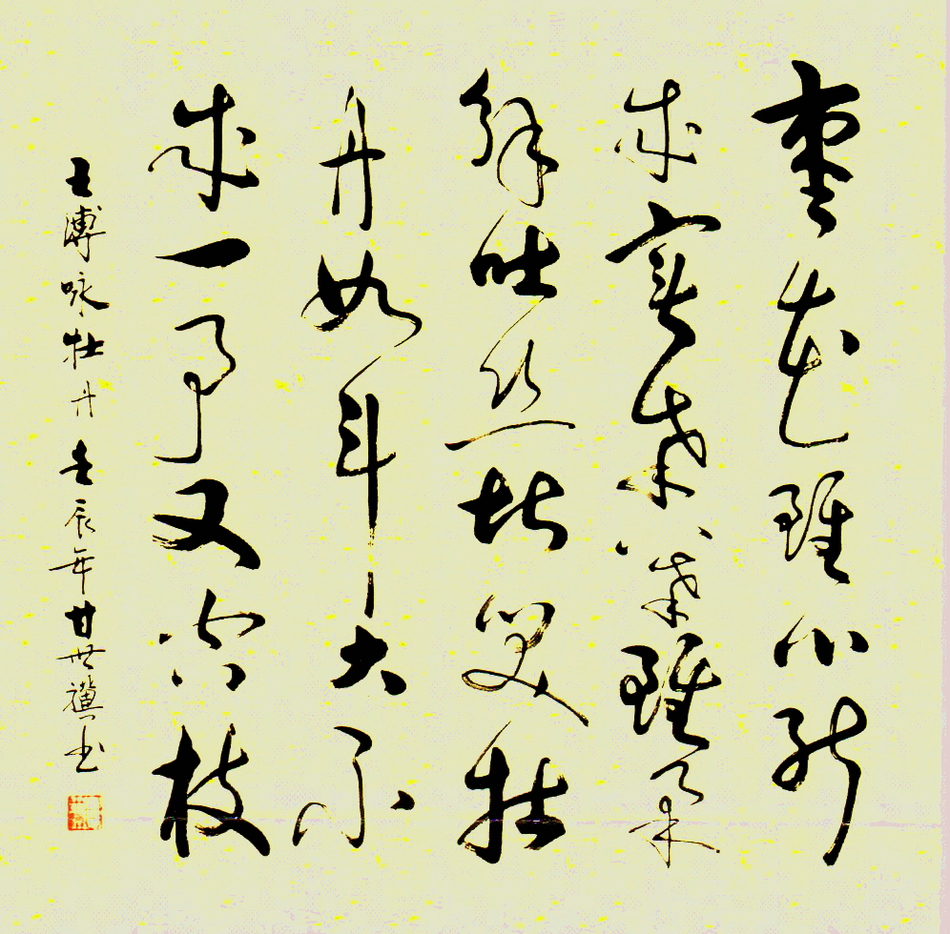 枣花雖小能
成實桑葉雖柔
解吐丝堪笑牡
丹如斗大不
成一事又空枝
王溥咏牡丹 壬辰年甘世书